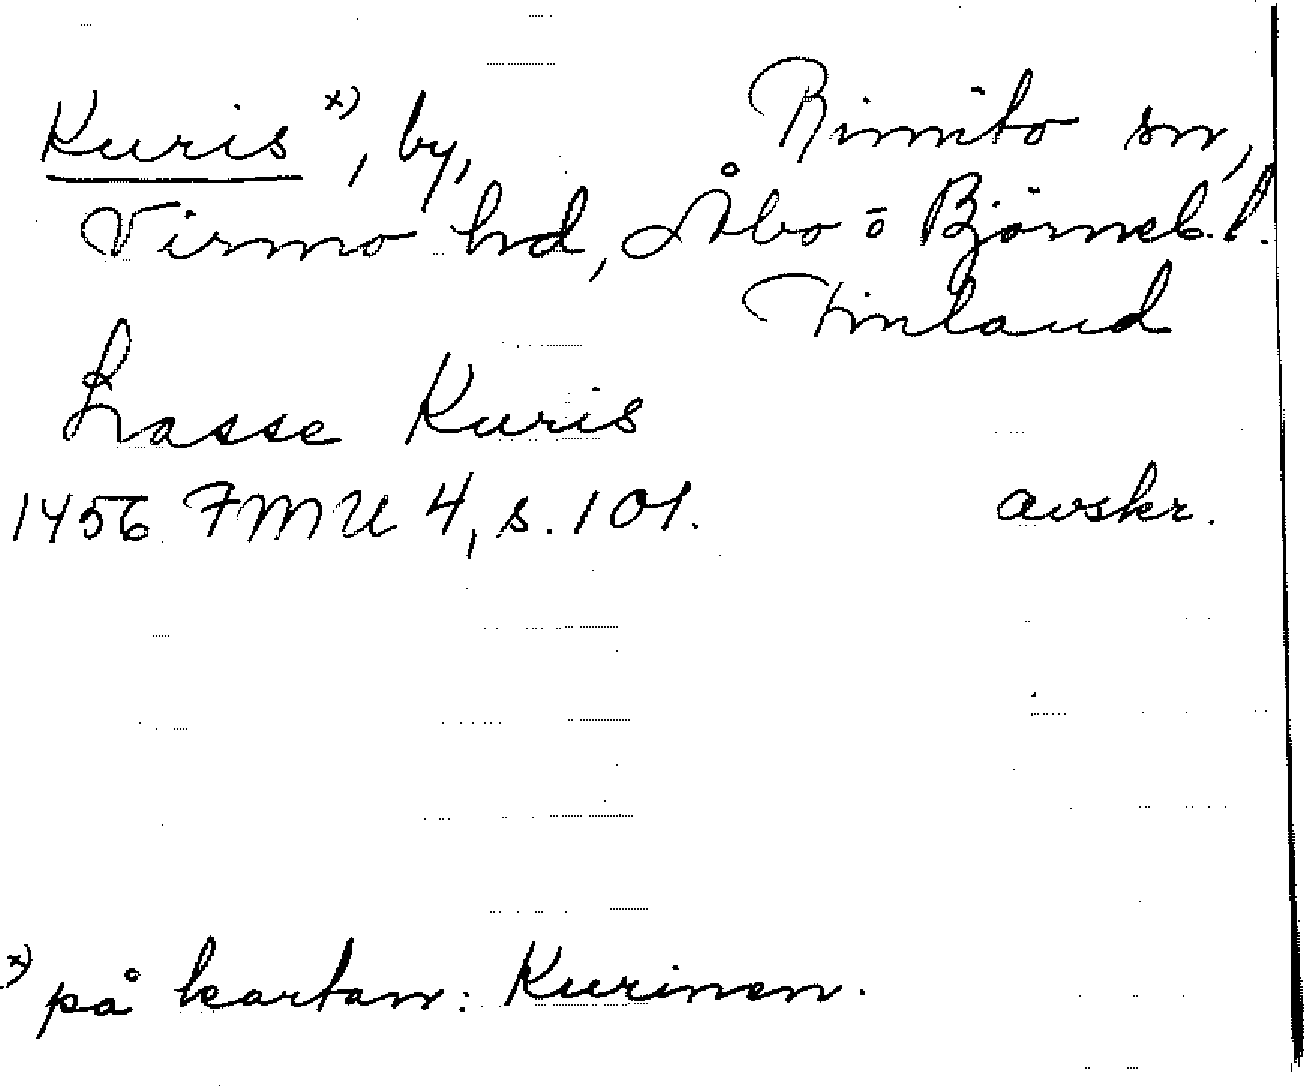 Kuris x), by, Rimito sn,
Virmo hd, Åbo o Björneb. l.
Finland
Lasse Kuris
1456 FMU 4, s. 101. avskr.
x) på kartan: Kurinen.